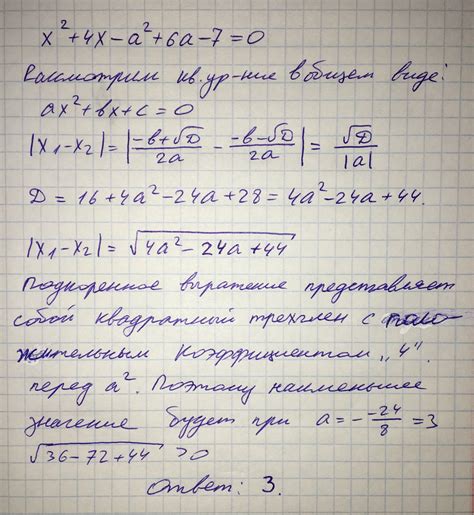 x² + 4x - a² + 6a - 7 = 0
Рассмотрим кв. ур-ние в общем виде:
ax² + bx + c = 0
|x₁ - x₂| = |(-b + √D)/2a - (-b - √D)/2a| = √D/|a|
D = 16 + 4a² - 24a + 28 = 4a² - 24a + 44.
|x₁ - x₂| = √(4a² - 24a + 44)
Подкоренное выражение представляет
собой квадратный трехчлен с поло-
жительным коэффициентом „4"
перед a². Поэтому наименьшее
значение будет при a = - -24/8 = 3
√(36 - 72 + 44) > 0
Ответ: 3.